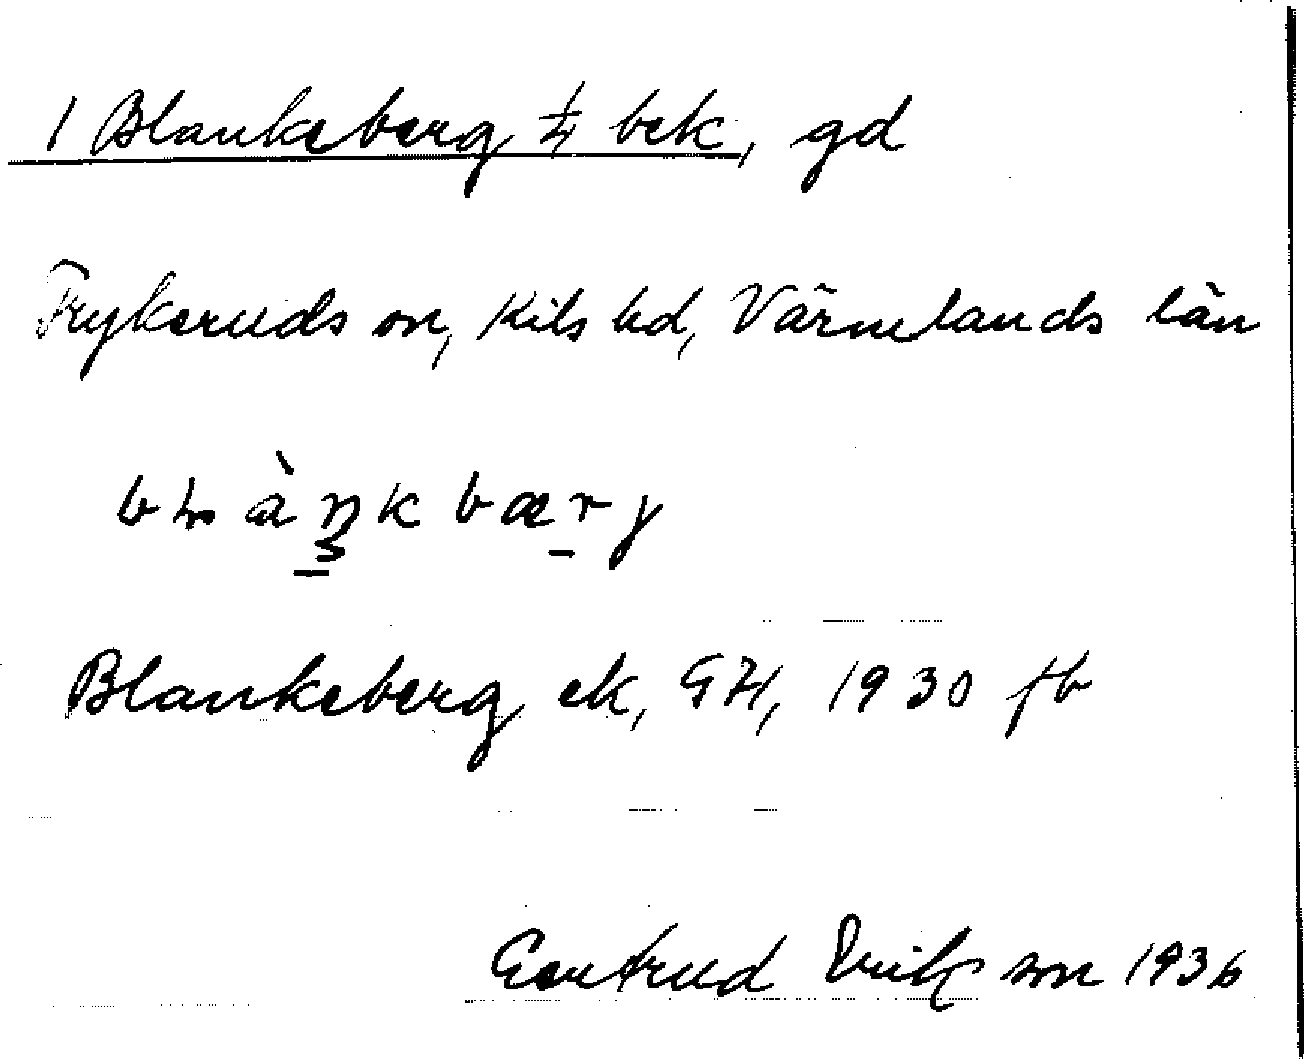 1 Blankeberg ¼ bek, gd
Frykeruds sn, Kils hd, Värmlands län
Blankeberg ek, GH, 1930 fb
Gertrud Erikson 1936